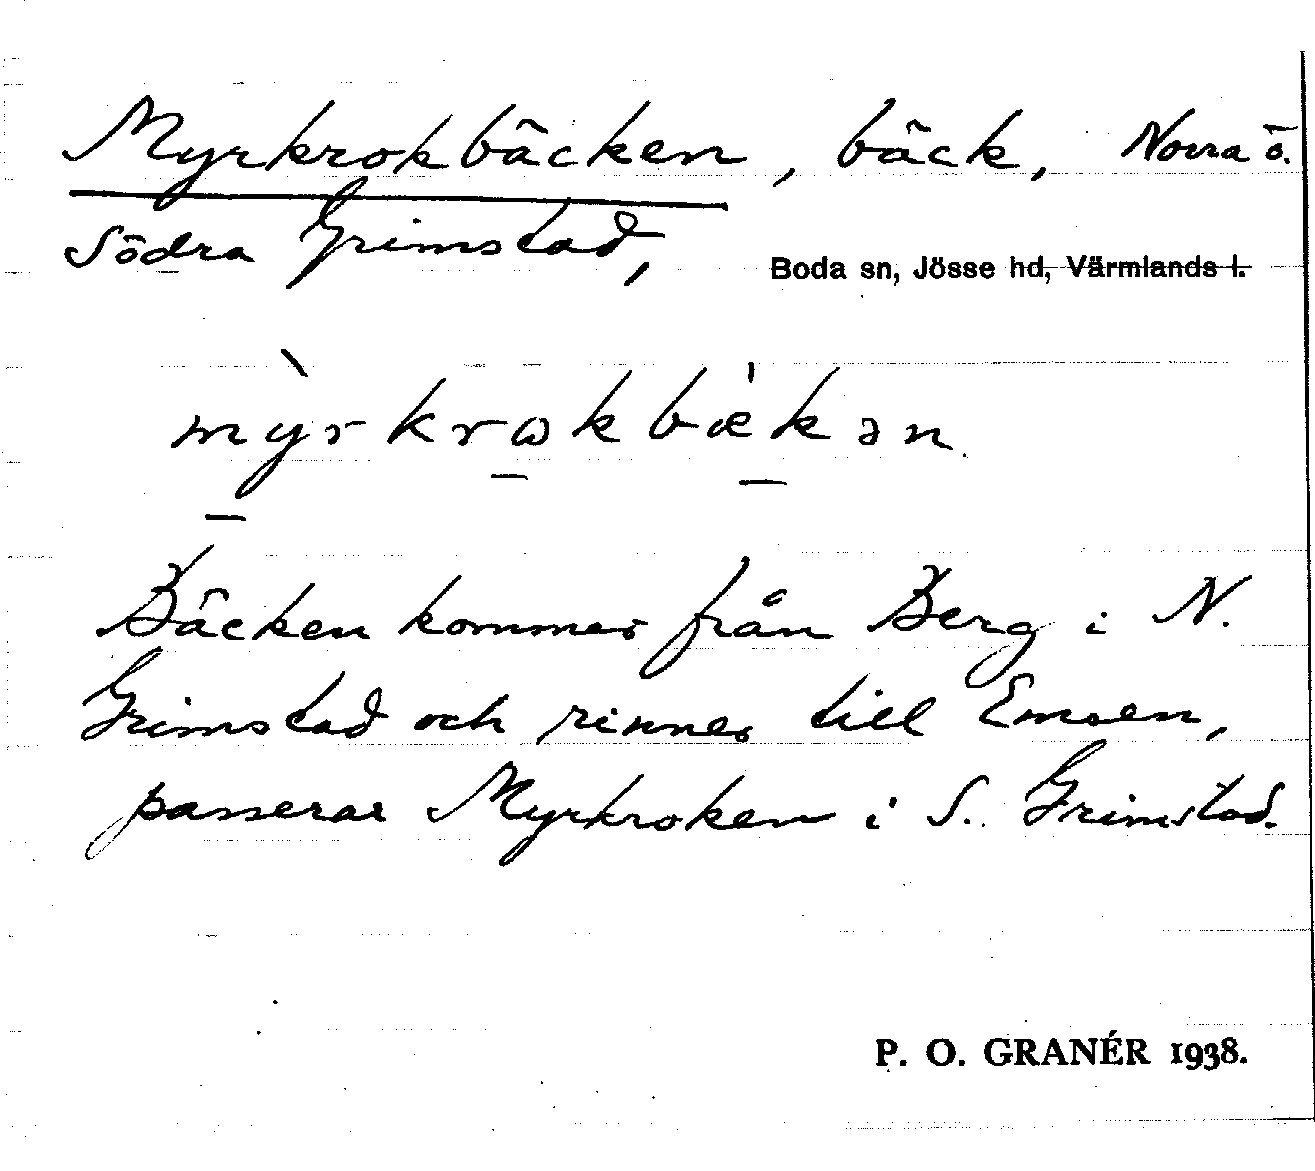 Myrkrokbäcken, bäck, Norra o.
Södra Grimstad,
Boda sn, Jösse hd, Värmlands l.
mỳ̠rkrω̠kbæ̠̍kən
Bäcken kommer från Berg i N.
Grimstad och rinner till Emsen,
passerar Myrkroken i S. Grimstad.
P. O. GRANÉR 1938.